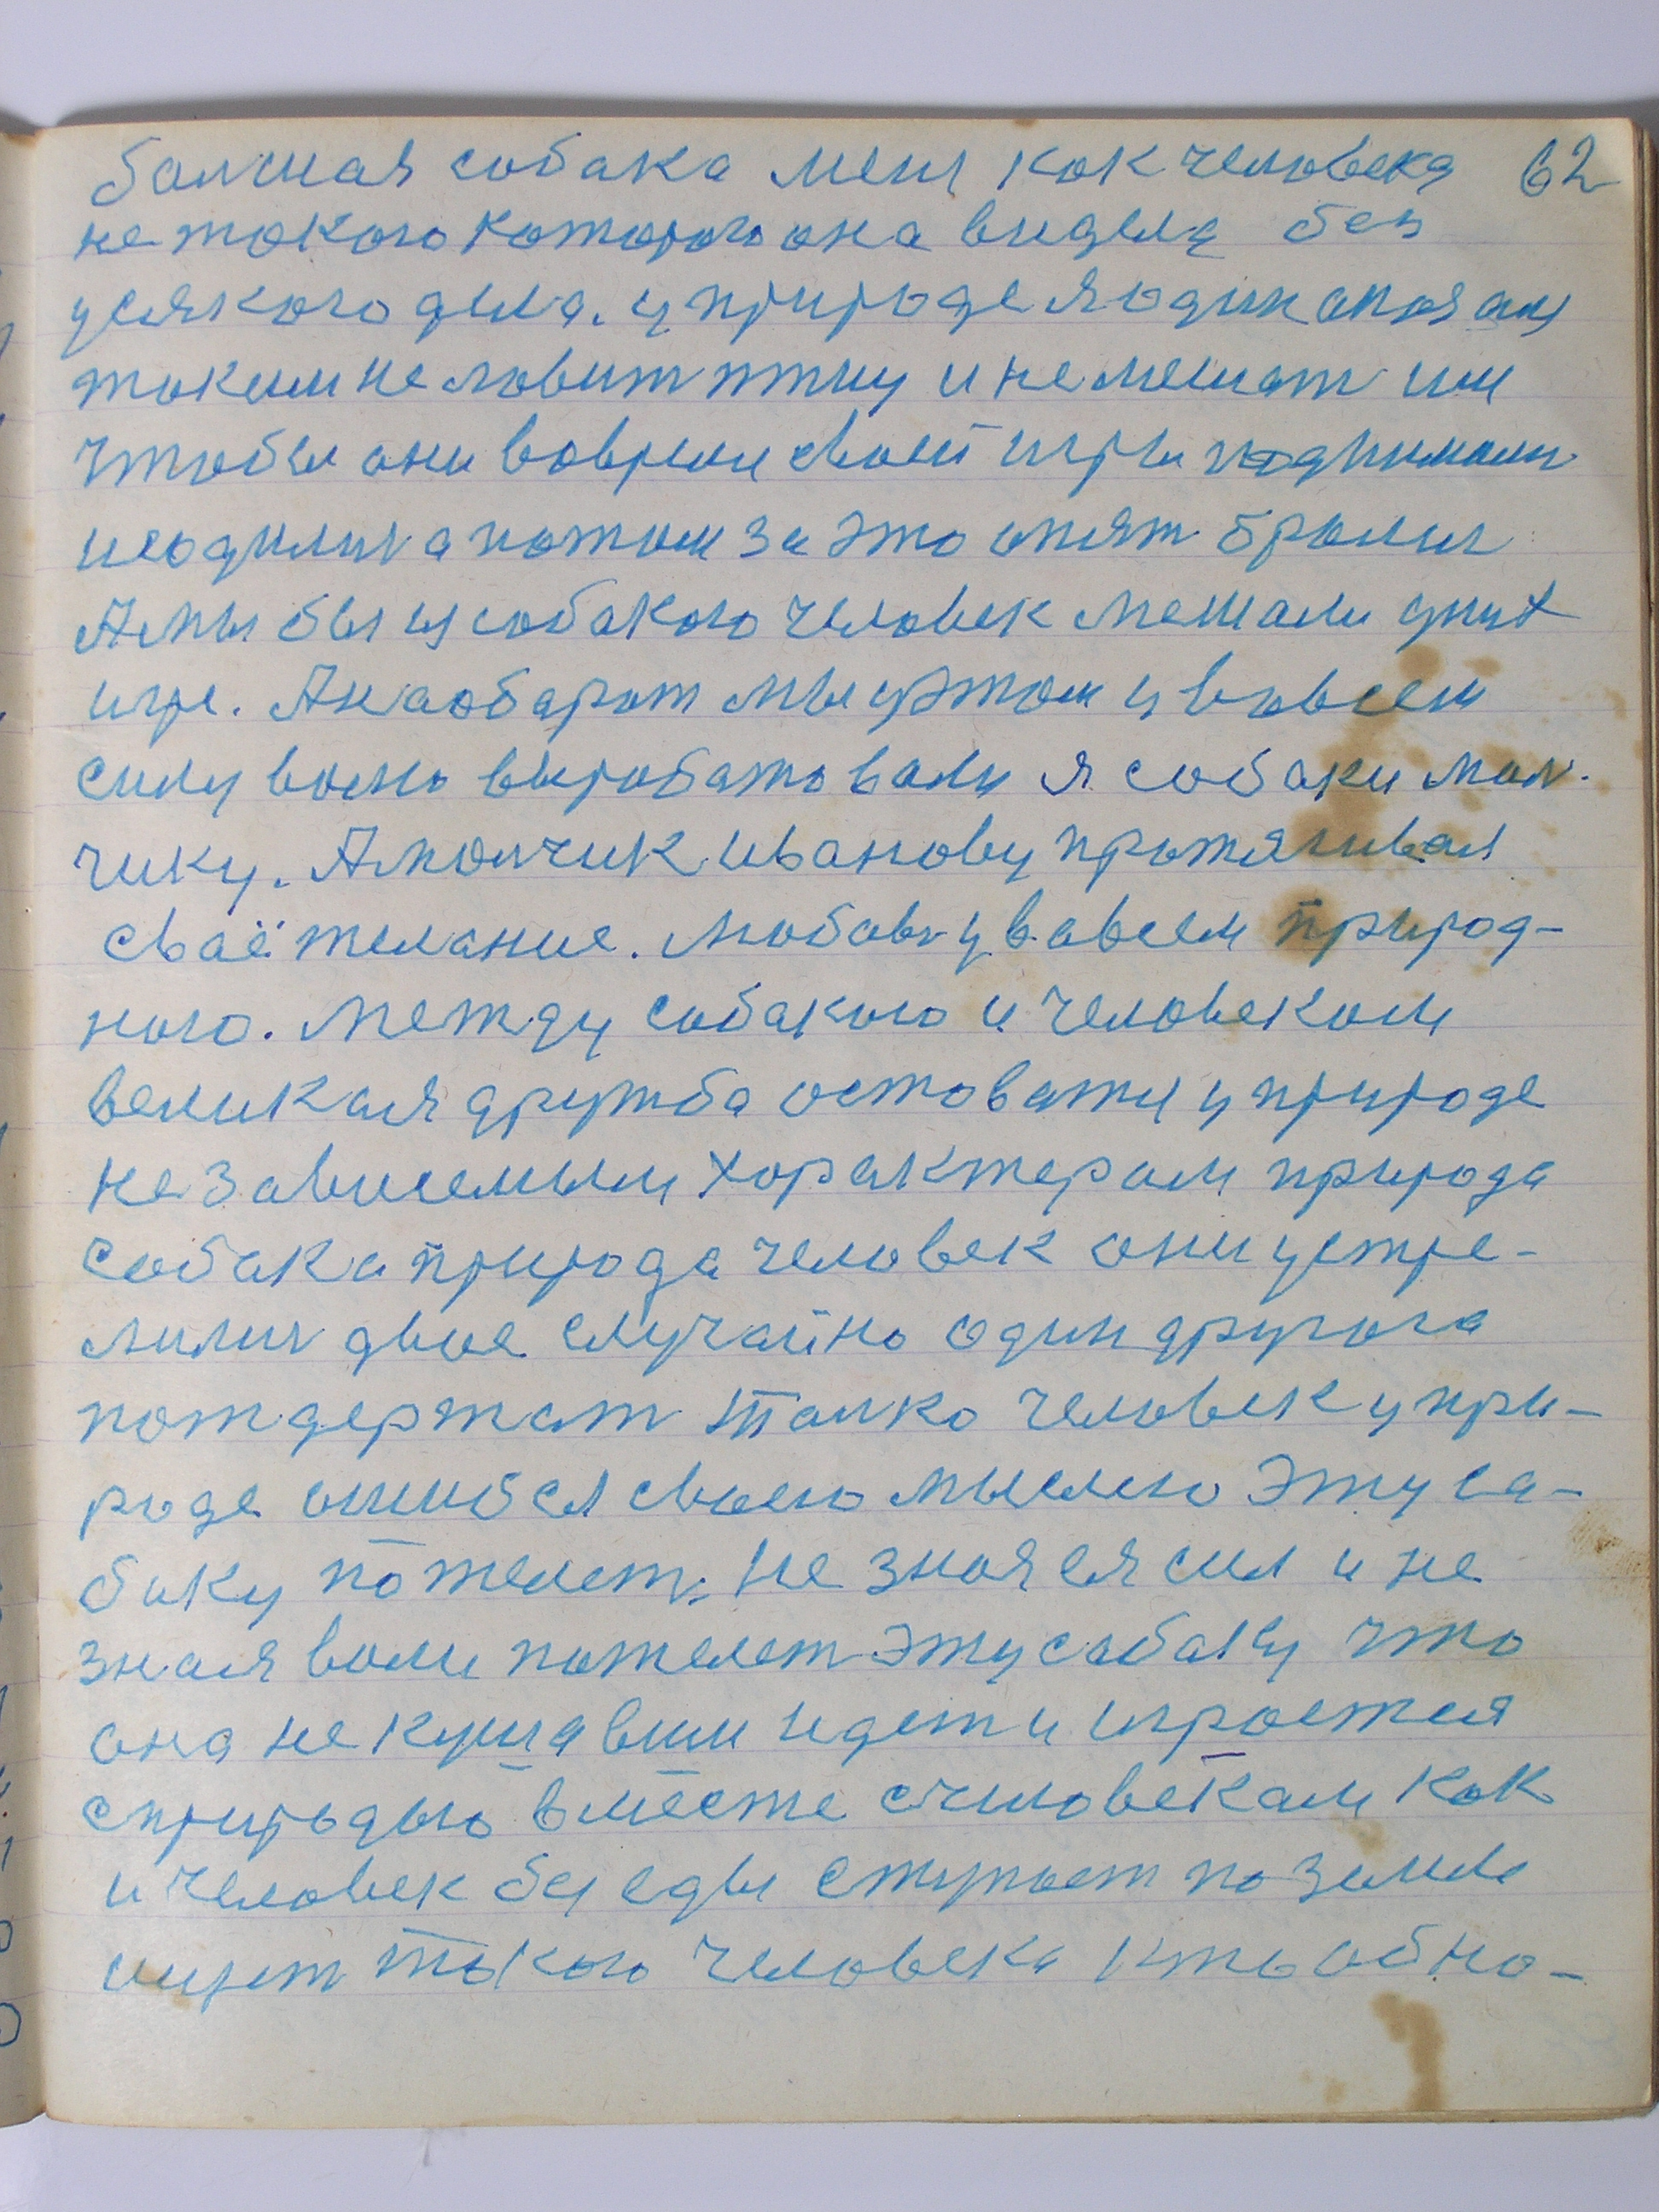 62
болшая собака меня как человека
не такого которого она видела без
усякого дела. у природе я один
таким не ловит птицу и не мешат им
чтобы они вовремя своей игры поднимали
и содилися а потом за это опят бролися
А мы бы из собакою человек мешали у них
игре. А наоборот мы у этом у во всем
силу волю выробатовали я собаки мал-
чику. А малчик иванову протягивал
сваё желание. любовь у во всем природ-
ного. между собакою и человеком
великая дружба остоватися у природе
не зависемым характерам природа
собака природа человек они устре-
милися двое случайно один другога
потдержат толко человек у при-
роде ошибся своею мыслею эту са-
баку пожелет. Не зная ея сил и не
зная воли пожелет эту сабаку что
она не кушавши идет и играется
с природою вместе с чиловекам как
и человек без еды ступает по земле
ищет такого человека кто обно-